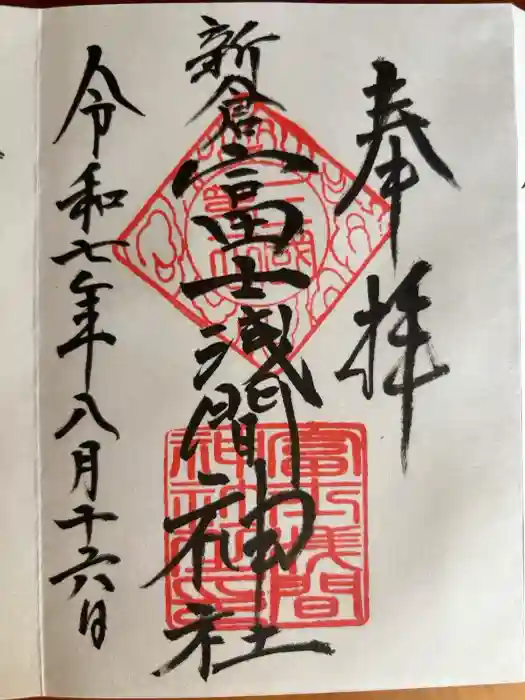 奉拝
新倉富士浅間神社
令和七年八月十六日
富士浅間
神社